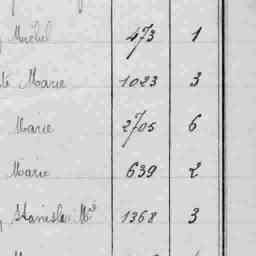 Michel 473 1
te Marie 1023 3
Marie 2705 6
Marie 639 2
Stanislas Md 1368 3